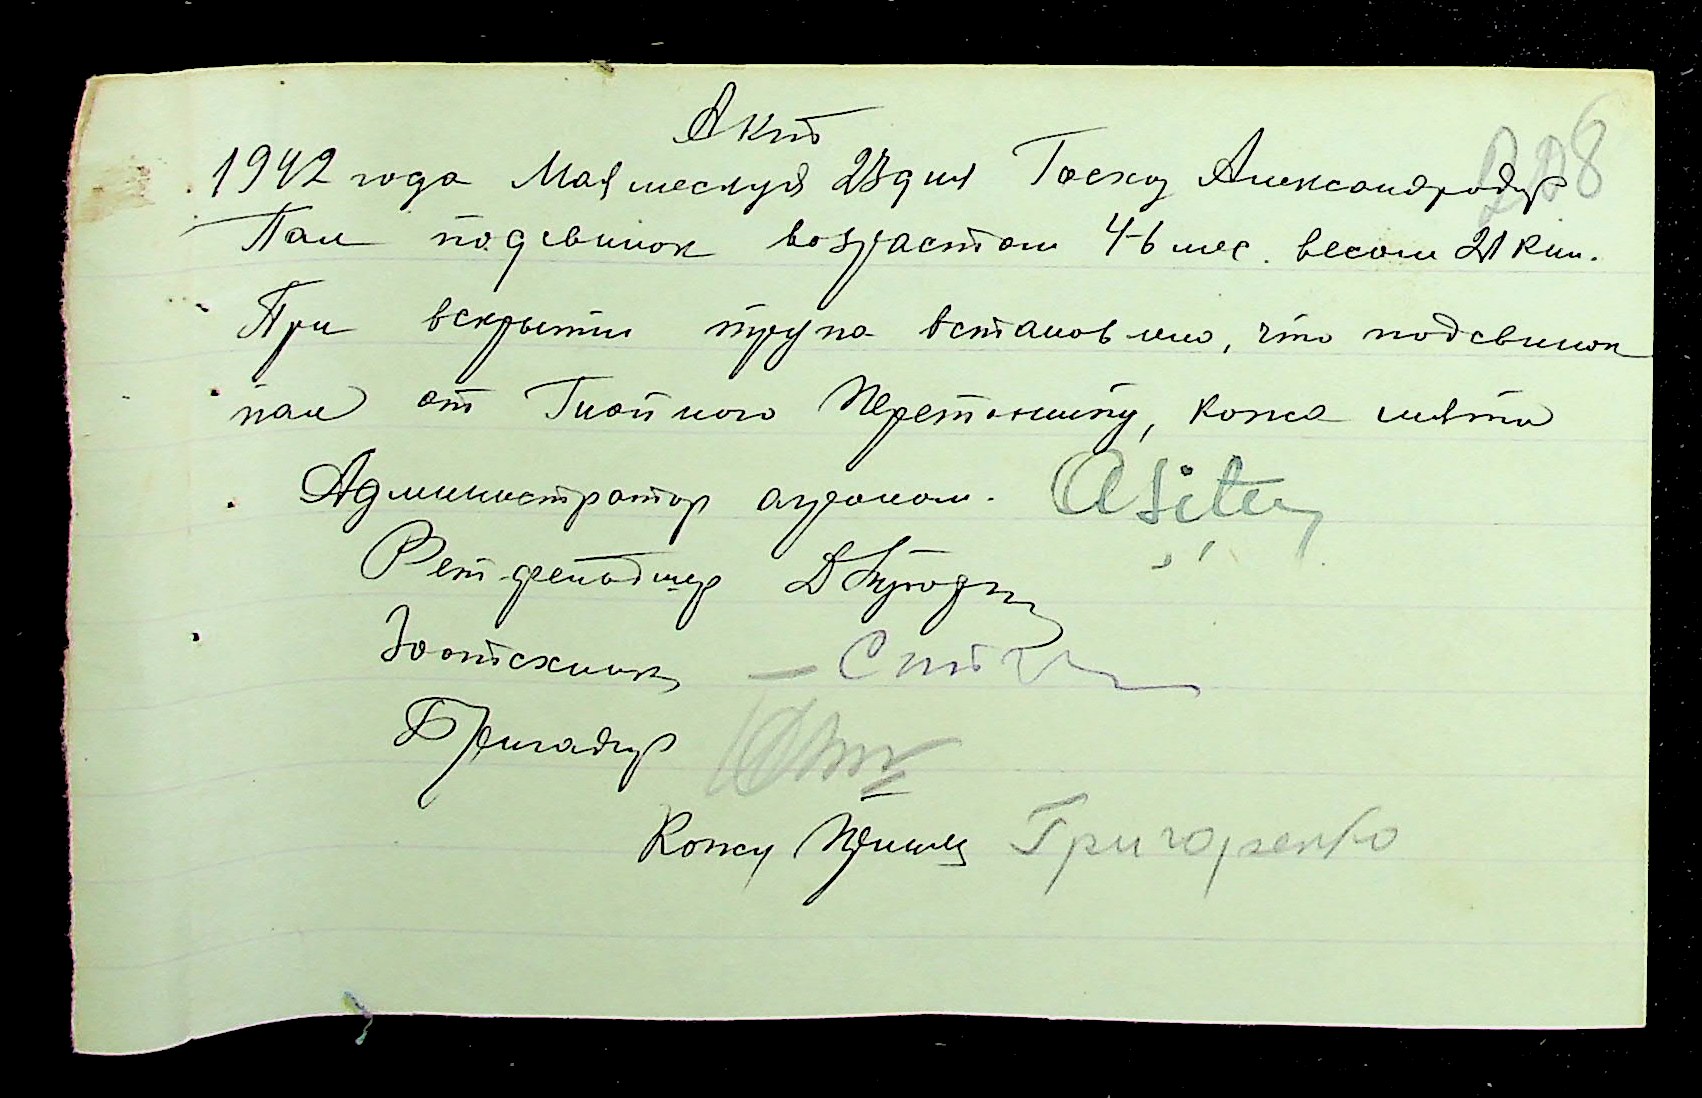 Акт
1942 года Мая месяця 23 дня Госхоз Александродар
Пал подсвинок возрастом 4-6 мес. весом 21 кил.
При вскрыти трупа встановлино, что подсвинок
пал от Гнойного Перетониту, кожа снята
Администратор агроном.
Вет-фельдшер
Зоотехник
Бригадир
Кожу Принял Григоренко